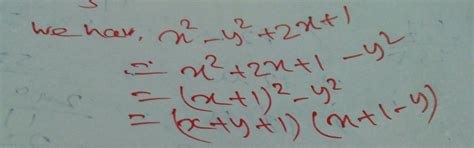 we have, x² - y² + 2x + 1
= x² + 2x + 1 - y²
= (x+1)² - y²
= (x+y+1) (x+1-y)